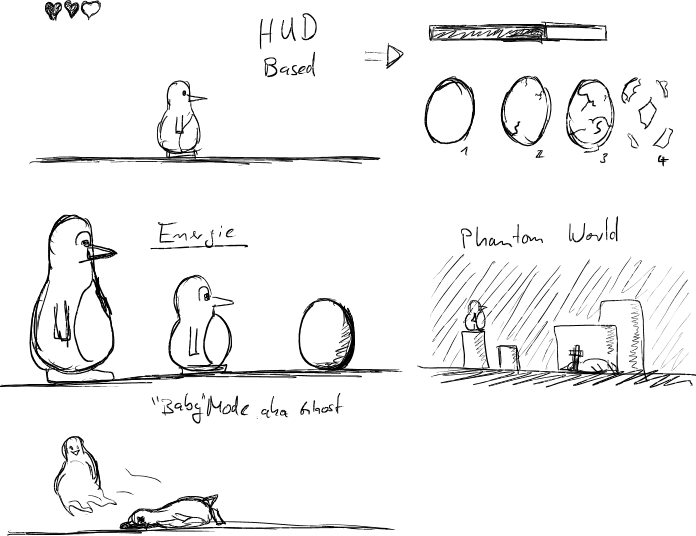 HUD
Based
1 2 3 4
Energie
Phantom World
"Baby" Mode aka Ghost